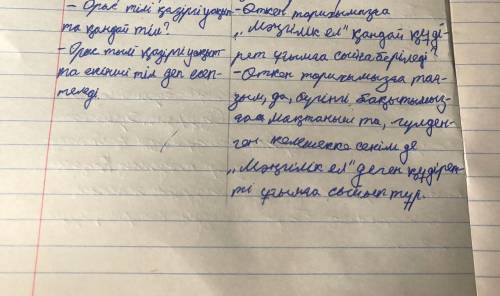 - Орыс тілі қазіргі уақыт-
та қандай тіл?
- Орыс тілі қазіргі уақыт-
та екінші тіл деп есеп-
теледі.
- Өткен тарихымызға
„Мәңгілік ел" қандай құді-
рет ұғымға сыйға беріледі?
- Өткен тарихымызға тағ-
зым, да, бүгінгі бақытымыз-
ға мақтаныш та, гүлден-
ген келешекке сенім де
„Мәңгілік ел" деген құдірет-
ті ұғымға сыйып тұр.